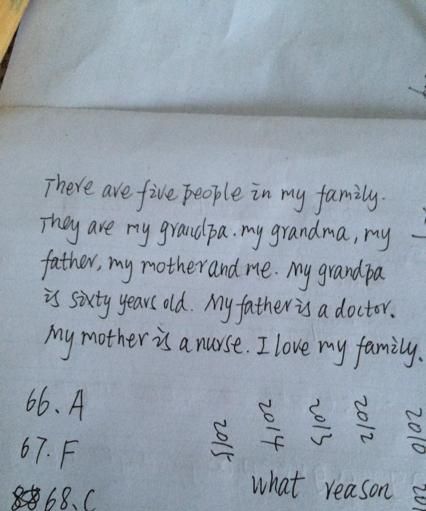 There are five people in my family.
They are my grandpa. my grandma, my
father, my mother and me. My grandpa
is sixty years old. My father is a doctor.
My mother is a nurse. I love my family.
66. A
67. F
68. C
2015
2014
2013
2012
2010
what reason